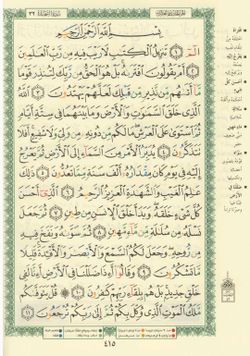 بِسْمِ اللَّهِ الرَّحْمَٰنِ الرَّحِيمِ
الٓمٓ ۝١ تَنزِيلُ ٱلْكِتَٰبِ لَا رَيْبَ فِيهِ مِن رَّبِّ ٱلْعَٰلَمِينَ ۝٢
أَمْ يَقُولُونَ ٱفْتَرَىٰهُ بَلْ هُوَ ٱلْحَقُّ مِن رَّبِّكَ لِتُنذِرَ قَوْمًا
مَّآ أَتَىٰهُم مِّن نَّذِيرٍ مِّن قَبْلِكَ لَعَلَّهُمْ يَهْتَدُونَ ۝٣ ٱللَّهُ
ٱلَّذِى خَلَقَ ٱلسَّمَٰوَٰتِ وَٱلْأَرْضَ وَمَا بَيْنَهُمَا فِى سِتَّةِ أَيَّامٍ
ثُمَّ ٱسْتَوَىٰ عَلَى ٱلْعَرْشِ مَا لَكُم مِّن دُونِهِۦ مِن وَلِىٍّ وَلَا شَفِيعٍ أَفَلَا
تَتَذَكَّرُونَ ۝٤ يُدَبِّرُ ٱلْأَمْرَ مِنَ ٱلسَّمَآءِ إِلَى ٱلْأَرْضِ ثُمَّ يَعْرُجُ
إِلَيْهِ فِى يَوْمٍ كَانَ مِقْدَارُهُۥٓ أَلْفَ سَنَةٍ مِّمَّا تَعُدُّونَ ۝٥ ذَٰلِكَ
عَٰلِمُ ٱلْغَيْبِ وَٱلشَّهَٰدَةِ ٱلْعَزِيزُ ٱلرَّحِيمُ ۝٦ ٱلَّذِىٓ أَحْسَنَ
كُلَّ شَىْءٍ خَلَقَهُۥ وَبَدَأَ خَلْقَ ٱلْإِنسَٰنِ مِن طِينٍ ۝٧ ثُمَّ جَعَلَ
نَسْلَهُۥ مِن سُلَٰلَةٍ مِّن مَّآءٍ مَّهِينٍ ۝٨ ثُمَّ سَوَّىٰهُ وَنَفَخَ فِيهِ
مِن رُّوحِهِۦ وَجَعَلَ لَكُمُ ٱلسَّمْعَ وَٱلْأَبْصَٰرَ وَٱلْأَفْـِٔدَةَ قَلِيلًا
مَّا تَشْكُرُونَ ۝٩ وَقَالُوٓا۟ أَءِذَا ضَلَلْنَا فِى ٱلْأَرْضِ أَءِنَّا لَفِى
خَلْقٍ جَدِيدٍ بَلْ هُم بِلِقَآءِ رَبِّهِمْ كَٰفِرُونَ ۝١٠ قُلْ يَتَوَفَّىٰكُم
مَّلَكُ ٱلْمَوْتِ ٱلَّذِى وُكِّلَ بِكُمْ ثُمَّ إِلَىٰ رَبِّكُمْ تُرْجَعُونَ ۝١١
٤١٥